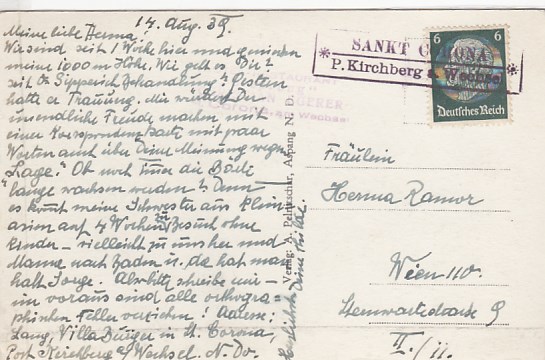 14. Aug. 39.
Meine liebe Herma!
Wir sind seit 1 Woche hier und geniessen
meine 1000 m Höhe. Wie geht es Dir
seit der Behandlung? Gestern
hatte er Trauung. Mir würdest Du
unendliche Freude machen mit
einer Korrespondenzkarte mit paar
Worten auch über Deine Meinung wegen
"Lage." Ob noch die Bäume
lange wachsen werden? Denn
es kommt meine Schwester aus Klein-
asien auf 4 Wochen Besuch ohne
Kinder – vielleicht zu uns her und
Mama nach Baden u. da hat man
halt Sorge. Also bitte schreibe mir –
im voraus sind alle orthogra-
phischen Fehler verziehen! Adresse:
Lang, Villa in St. Corona,
Post Kirchberg a/Wechsel. N. Do.
Herzlichst Deine
SANKT CORONA
P. Kirchberg a. Wechsel
6 6
Deutsches Reich
Verlag: A. Aspang N. D.
Fräulein
Herma
Wien
9
II./11.